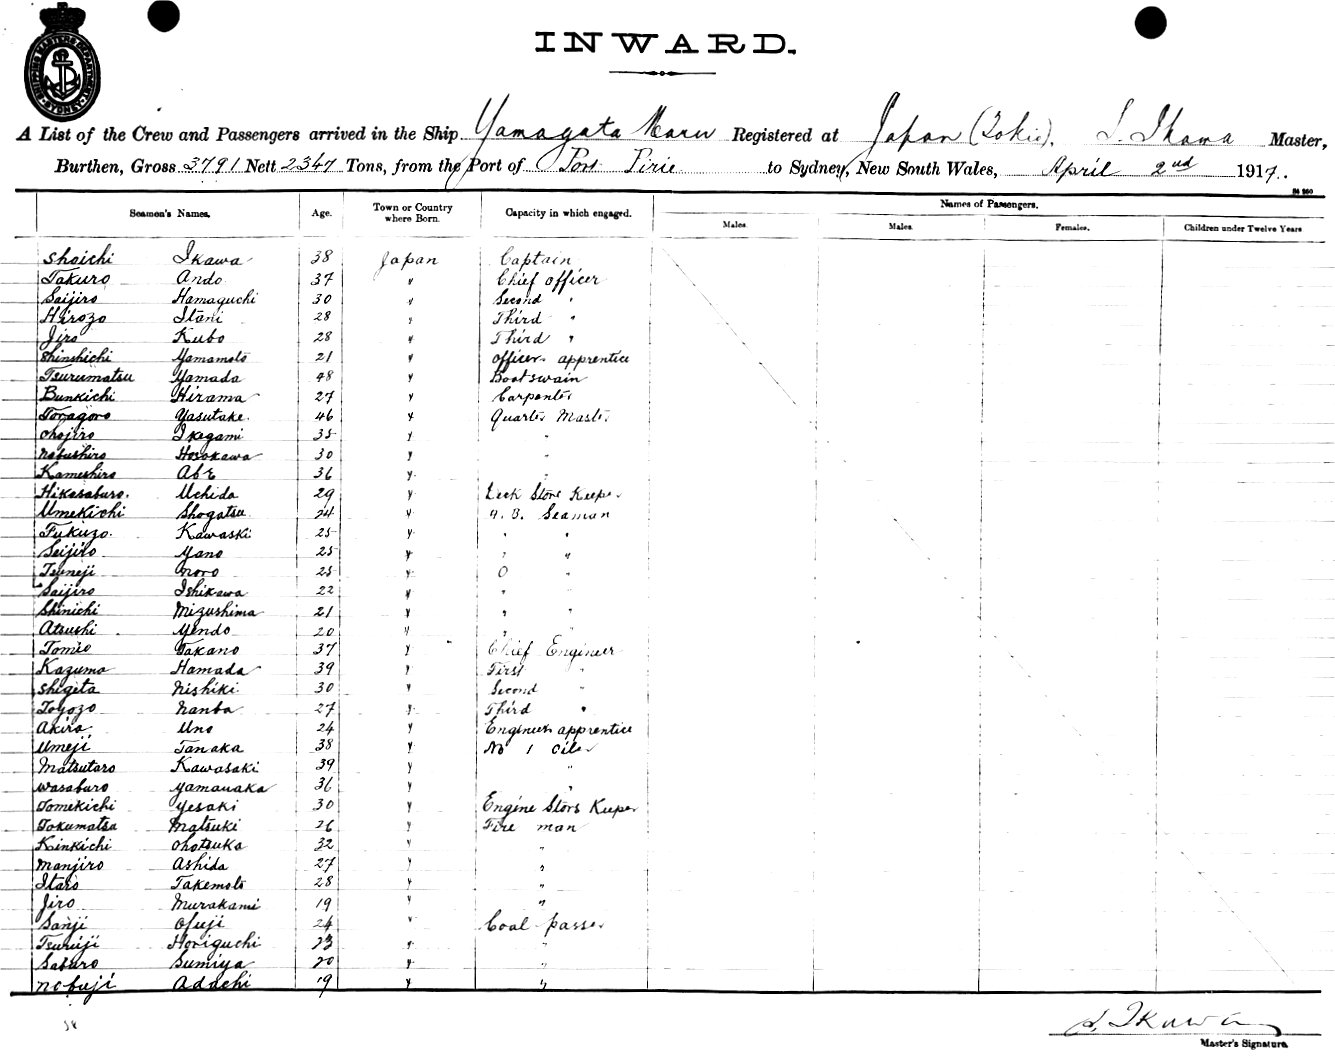 SHIPPING MASTERS DEPARTMENT SYDNEY
INWARD.
A List of the Crew and Passengers arrived in the Ship Yamagata Maru Registered at Japan (Tokio). S. Ikawa Master,
Burthen, Gross 3791 Nett 2347 Tons, from the Port of Port Pirie to Sydney, New South Wales, April 2nd 1917.
Seamen's Names. Age. Town or Country where Born. Capacity in which engaged. Names of Passengers.
Males. Males. Females. Children under Twelve Years
Shoichi Ikawa 38 Japan Captain
Takuro Ando 37 " Chief officer
Saijiro Hamaguchi 30 " Second "
Hirozo Itani 28 " Third "
Jiro Kubo 28 " Third "
Shinshichi Yamamoto 21 " officer apprentice
Tsurumatsu Yamada 48 " Boatswain
Bunkichi Hirama 27 " Carpenter
Toragoro Yasutake 46 " Quarter Master
Chojiro Ikegami 35 " "
Nobushiro Hosokawa 30 " "
Kameshiro Abe 36 " "
Hikosaburo. Uchida 29 " Deck Store Keeper
Umekichi Shogatsu 24 " A. B. Seaman
Fukuzo. Kawaski 25 " " "
Seijiro Yano 25 " " "
Tsuneji Noro 25 " O "
Saijiro Ishikawa 22 " " "
Shinichi Mizushima 21 " " "
Atsushi Yendo 20 " " "
Tomio Takano 37 " Chief Engineer
Kazuma Hamada 39 " First "
Shigeta Nishiki 30 " Second "
Toyozo Nanba 27 " Third "
Akira Uno 24 " Engineer apprentice
Umeji Tanaka 38 " No 1 oiler
Matsutaro Kawasaki 39 " "
Wasaburo Yamanaka 36 " "
Tomekichi Yesaki 30 " Engine Stors Keeper
Tokumatsu Matsuki 26 " Fire man
Kinkichi Ohotsuka 32 " "
Manjiro Ashida 27 " "
Itaro Takemoto 28 " "
Jiro Murakami 19 " "
Sanji Ofuji 24 " Coal passer
Tsuruji Horiguchi 23 " "
Saburo Sumiya 20 " "
Nobuji Adachi 19 " "
38
S. Ikawa
Master's Signature